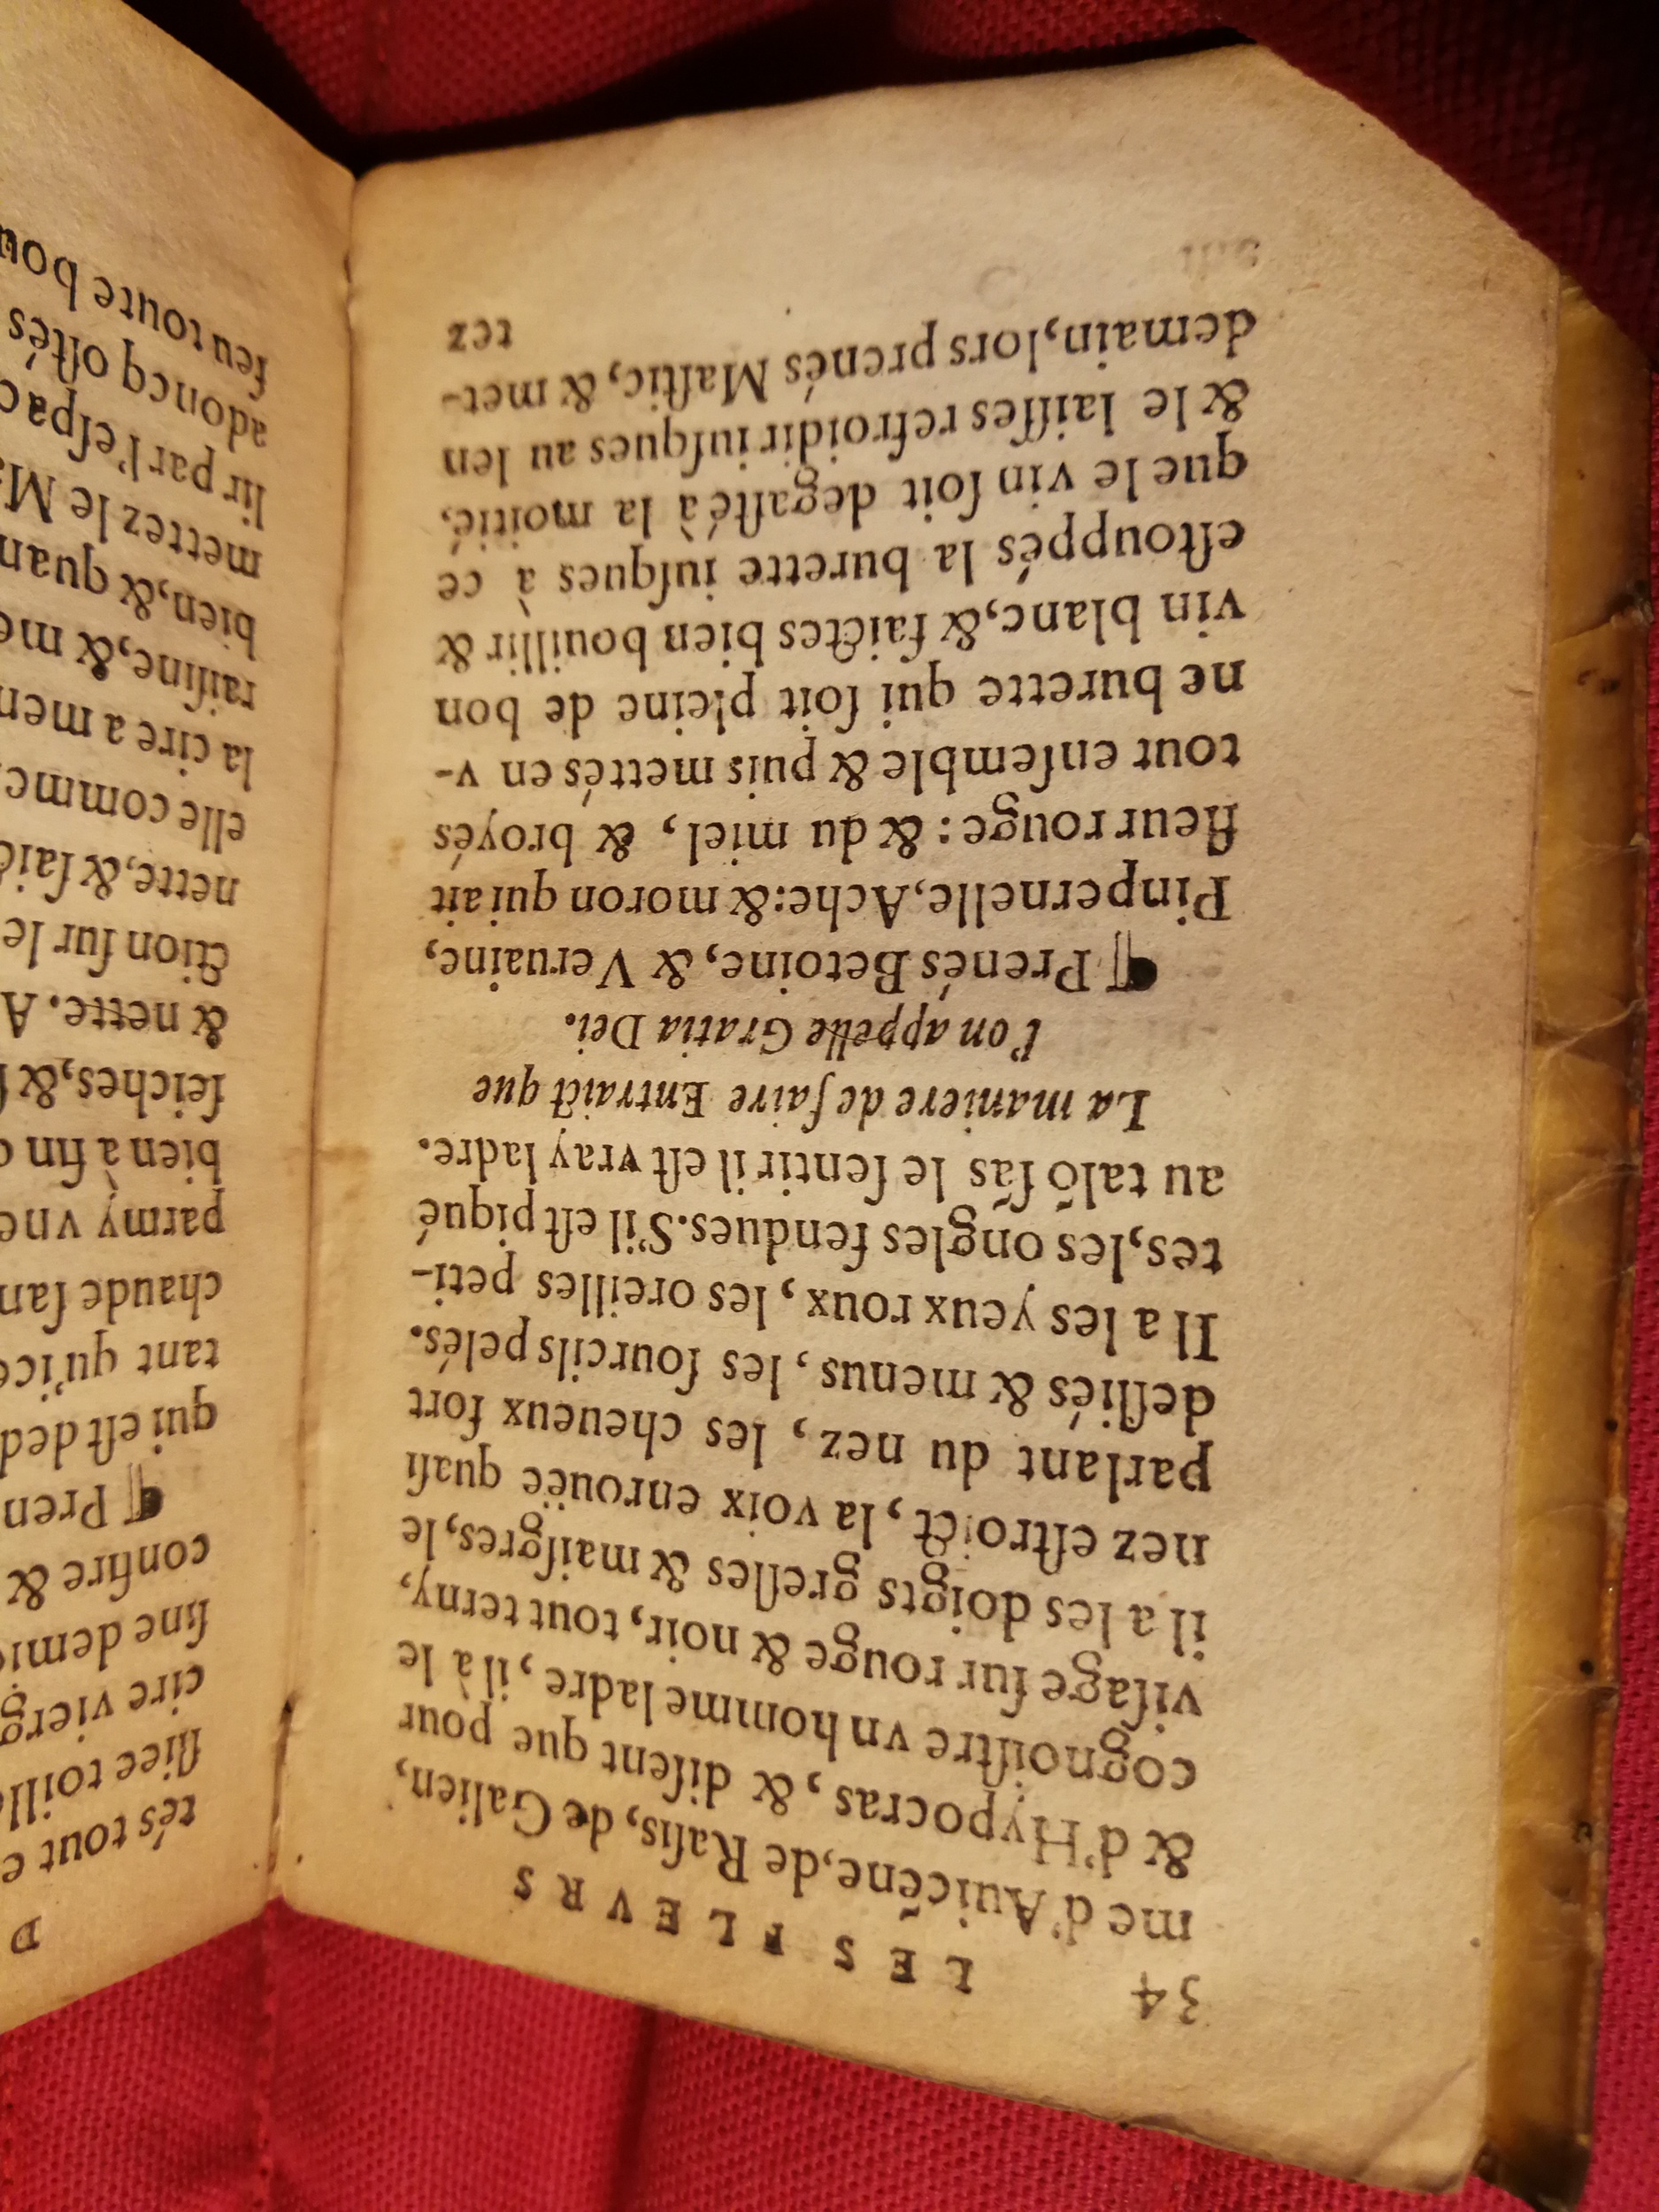 34 LES FLEVRS
me d'Auicẽne, de Rasis, de Galien,
& d'Hypocras, & disent que pour
cognoiſtre vn homme ladre, il à le
viſage ſur rouge & noir, tout terny,
il a les doigts greſles & maiſgres, le
nez eſtroict, la voix enrouëe quaſi
parlant du nez, les cheueux fort
deſliés & menus, les ſourcils pelés.
Il a les yeux roux, les oreilles peti-
tes, les ongles fendues. S'il eſt piqué
au talõ ſãs le ſentir il eſt vray ladre.
La maniere de faire Entraict que
l'on appelle Gratia Dei.
¶ Prenés Betoine, & Veruaine,
Pinpernelle, Ache: & moron qui ait
fleur rouge: & du miel, & broyés
tout enſemble & puis mettés en v-
ne burette qui ſoit pleine de bon
vin blanc, & faictes bien bouillir &
eſtouppés la burette iuſques à ce
que le vin ſoit degaſté à la moitié,
& le laiſſes refroidir iuſques au len
demain, lors prenés Maſtic, & met-
tez
D
tés tout e
fliee toill
cire vierg
fine demi
confire &
¶ Pren
qui eſt ded
tant qu'ice
chaude ſan
parmy vne
bien à fin
ſeiches, &
& nette. A
ction ſur le
nette, & ſai
elle comme
la cire a men
raiſine, & me
bien, & quan
mettez le M
lir par l'eſpac
adoncq oſtés
feu toute bou